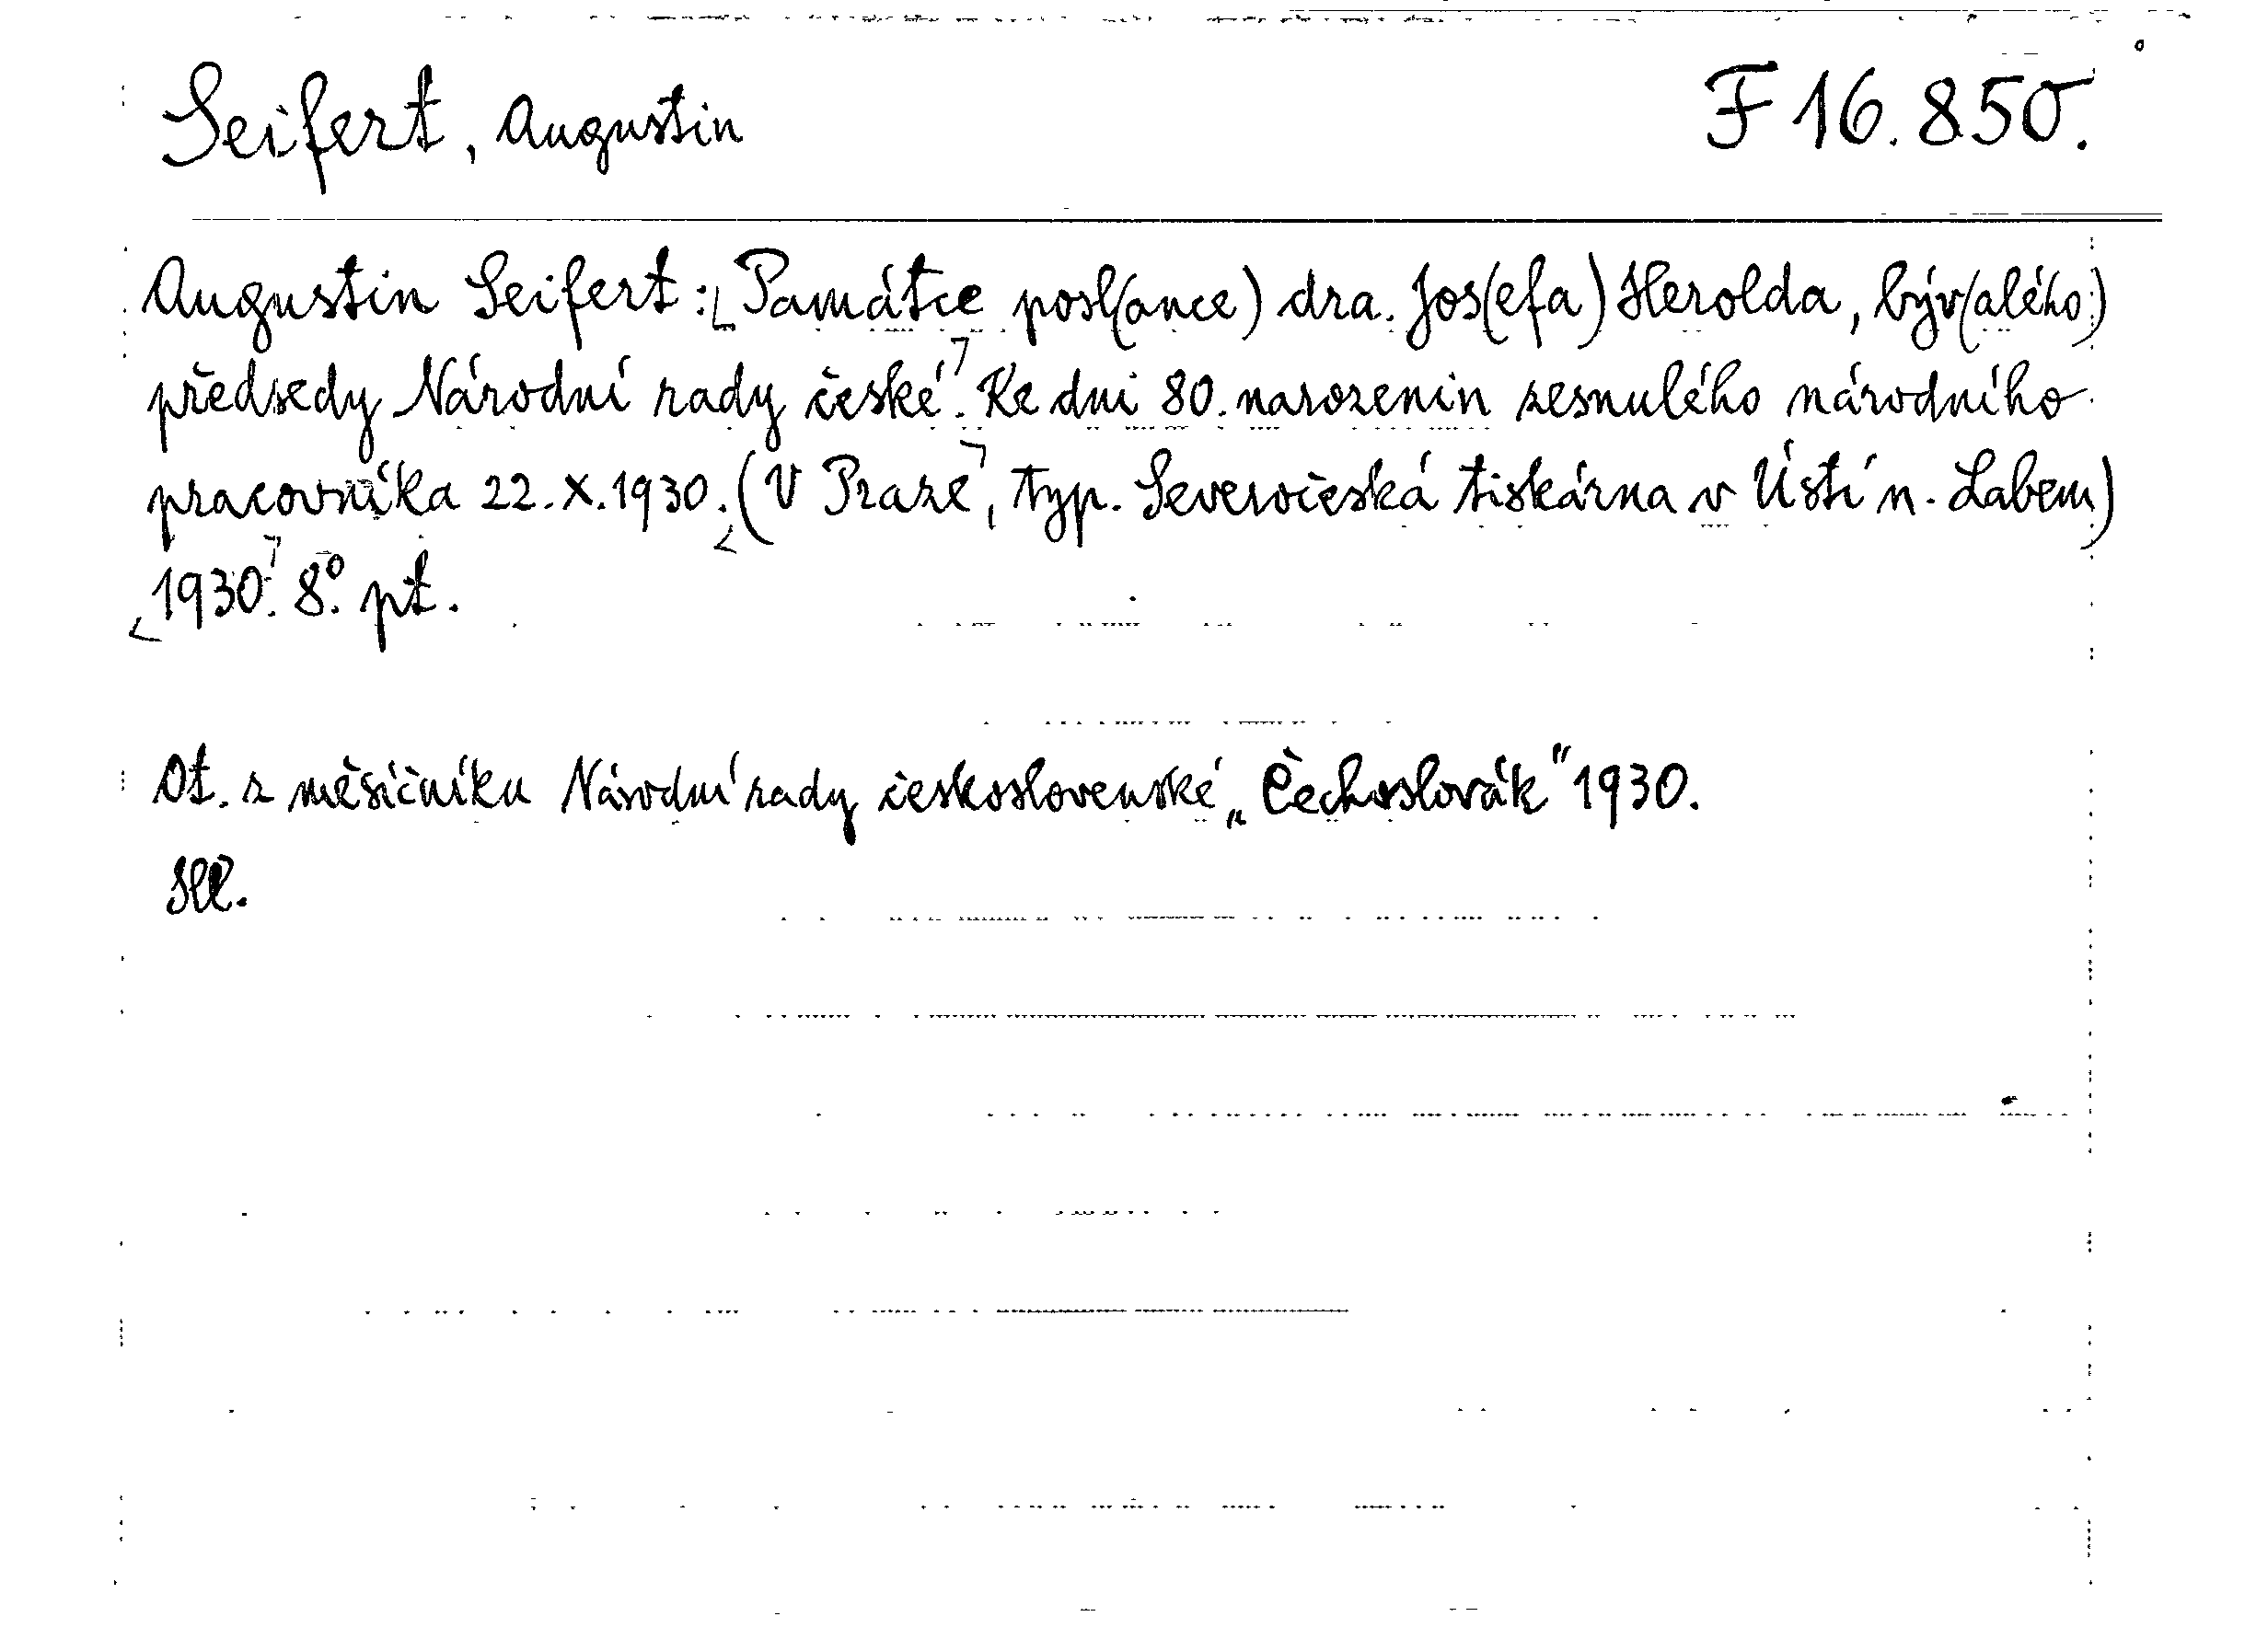 Seifert, Augustin F 16.850.
Augustin Seifert: Památce posl(ance) dra. Jos(efa) Herolda, býv(alého)
předsedy Národní rady české. Ke dni 80. narozenin zesnulého národního
pracovníka 22.X.1930. (V Praze, typ. Severočeská tiskárna v Ústí n. Labem)
1930. 8°. pt.
Ot. z měsíčníku Národní rady československé „Čechoslovák" 1930.